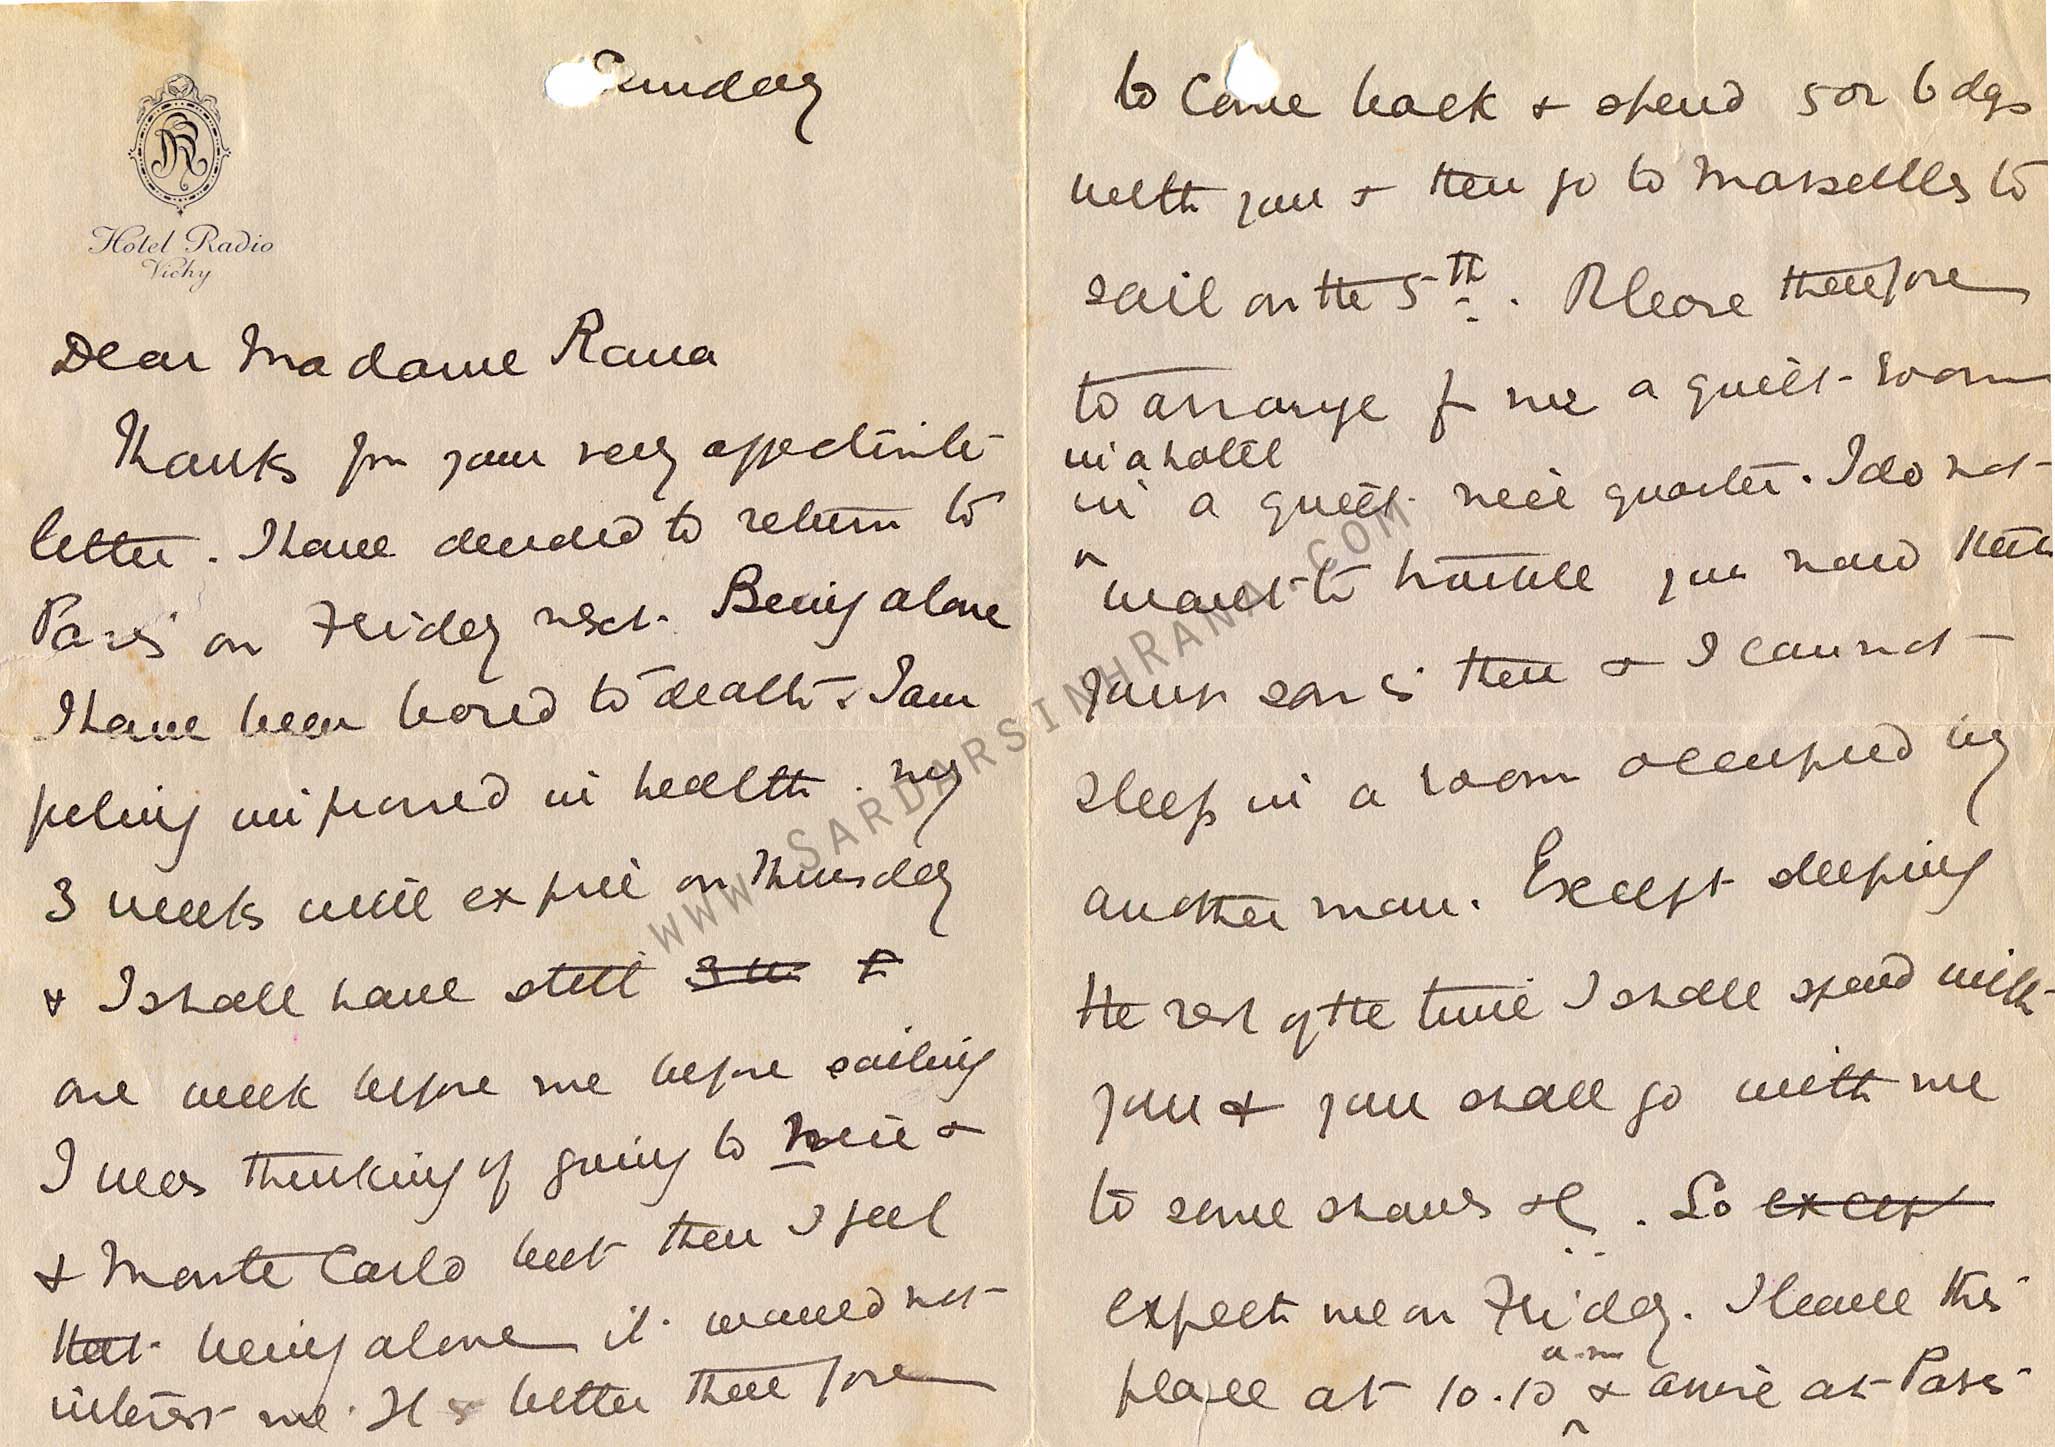 Sunday
Hotel Radio
Vichy
Dear Madame Rana
Thanks for your very affectionate
letter. I have decided to return to
Paris on Friday next. Being alone
I have been bored to death & I am
feeling improved in health. My
3 weeks will expire on Thursday
& I shall have still
one week before me before sailing
I was thinking of going to Nice &
& Monte Carlo but then I feel
that being alone it would not
interest me. It is better therefore
to come back & spend 5 or 6 days
with you & then go to Marseilles to
sail on the 5th. Please therefore
to arrange for me a quiet room
in a hotel
in a quiet nice quarter. I do not
want to trouble you now that
your son is there & I cannot
sleep in a room occupied by
another man. Except sleeping
the rest of the time I shall spend with
you & you shall go with me
to some shows &c. So except
expect me on Friday. I leave this
a.m
place at 10.10 & arrive at Paris
www.SardarsinhRana.com